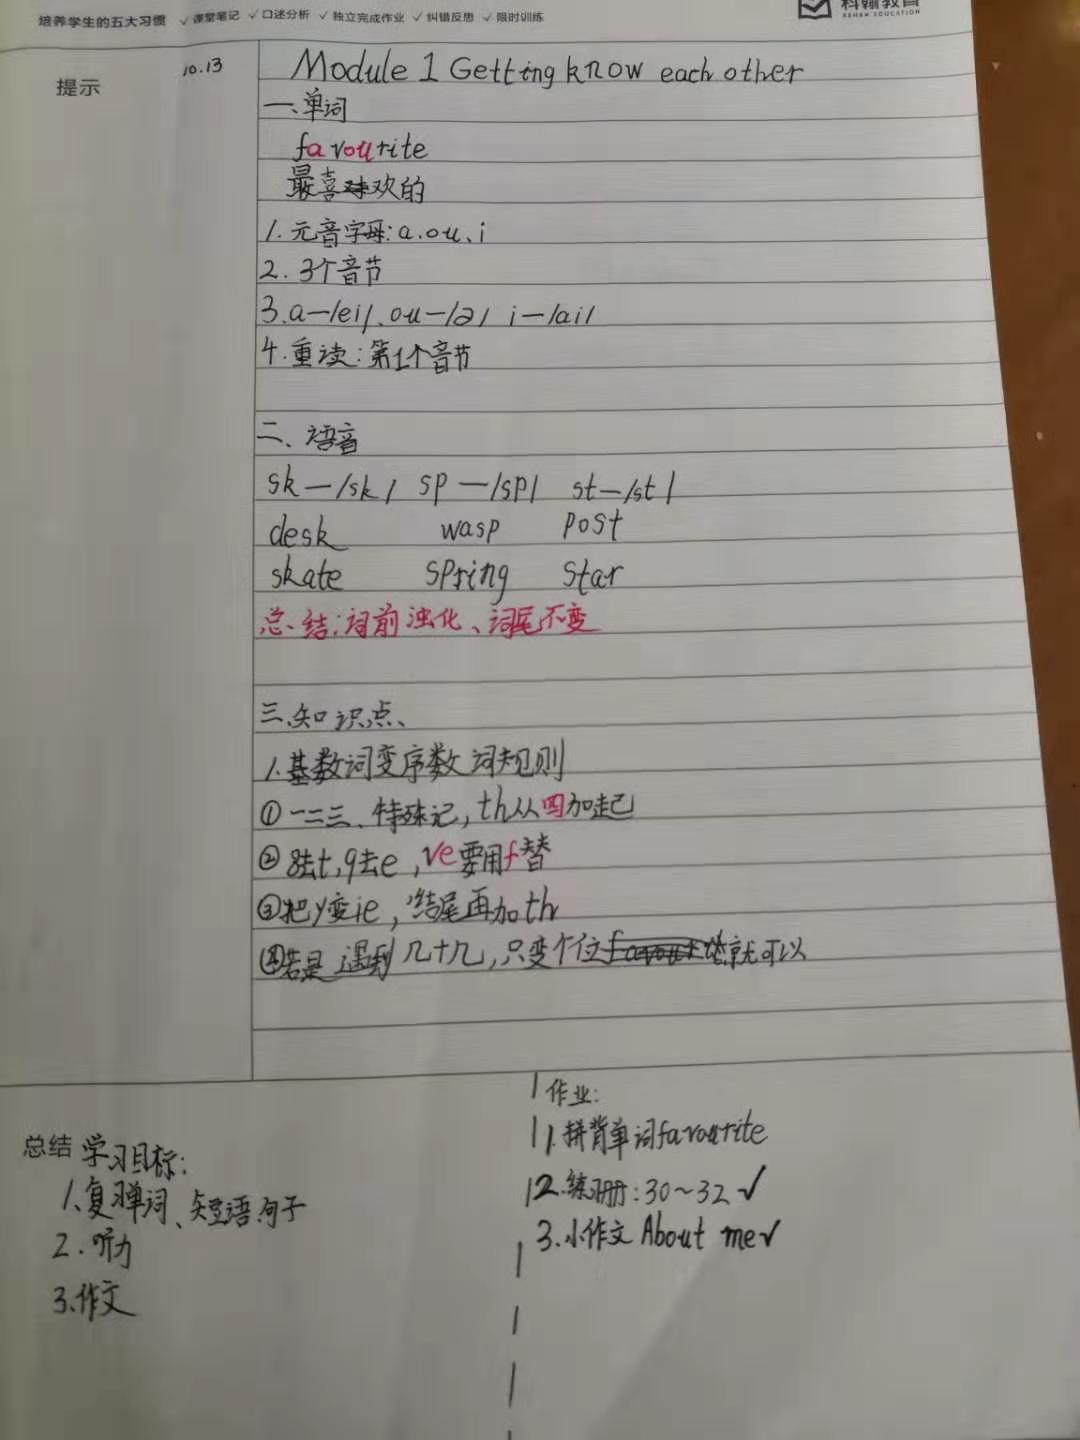 培养学生的五大习惯 ✓课堂笔记 ✓口述分析 ✓独立完成作业 ✓纠错反思 ✓限时训练
科翰教育
KEHAN EDUCATION
提示
10.13
Module 1 Getting know each other
一、单词
favourite
最喜欢的
1. 元音字母: a. ou、i
2. 3个音节
3. a—/ei/、ou—/ə/ i—/ai/
4. 重读: 第1个音节
二、语音
sk—/sk/ sp—/sp/ st—/st/
desk wasp post
skate spring star
总结: 词前浊化、词尾不变
三、知识点、
1. 基数词变序数词规则
① 一二三、特殊记, th从四加起
② 8去t, 9去e, ve要用f替
③ 把y变ie, 结尾再加th
④ 若是遇到几十几, 只变个位就可以
总结 学习目标:
1. 复习单词、短语.句子
2. 听力
3. 作文
作业:
1. 拼背单词favourite
2. 练习册: 30~32 ✓
3. 小作文 About me ✓